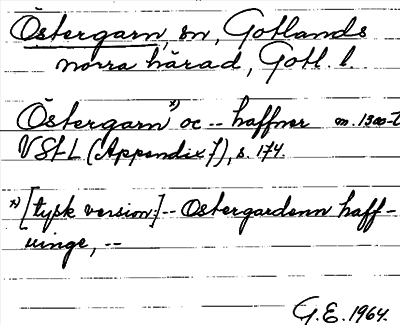 Östergarn, sn, Gotlands
norra härad, Gotl. l.
Östergarn*) oc -- haffner m. 1300-t
VStL (Appendix 7), s. 174.
*) [tysk version:] -- Ostergardenn haff-
uinge, --
G.E. 1964.